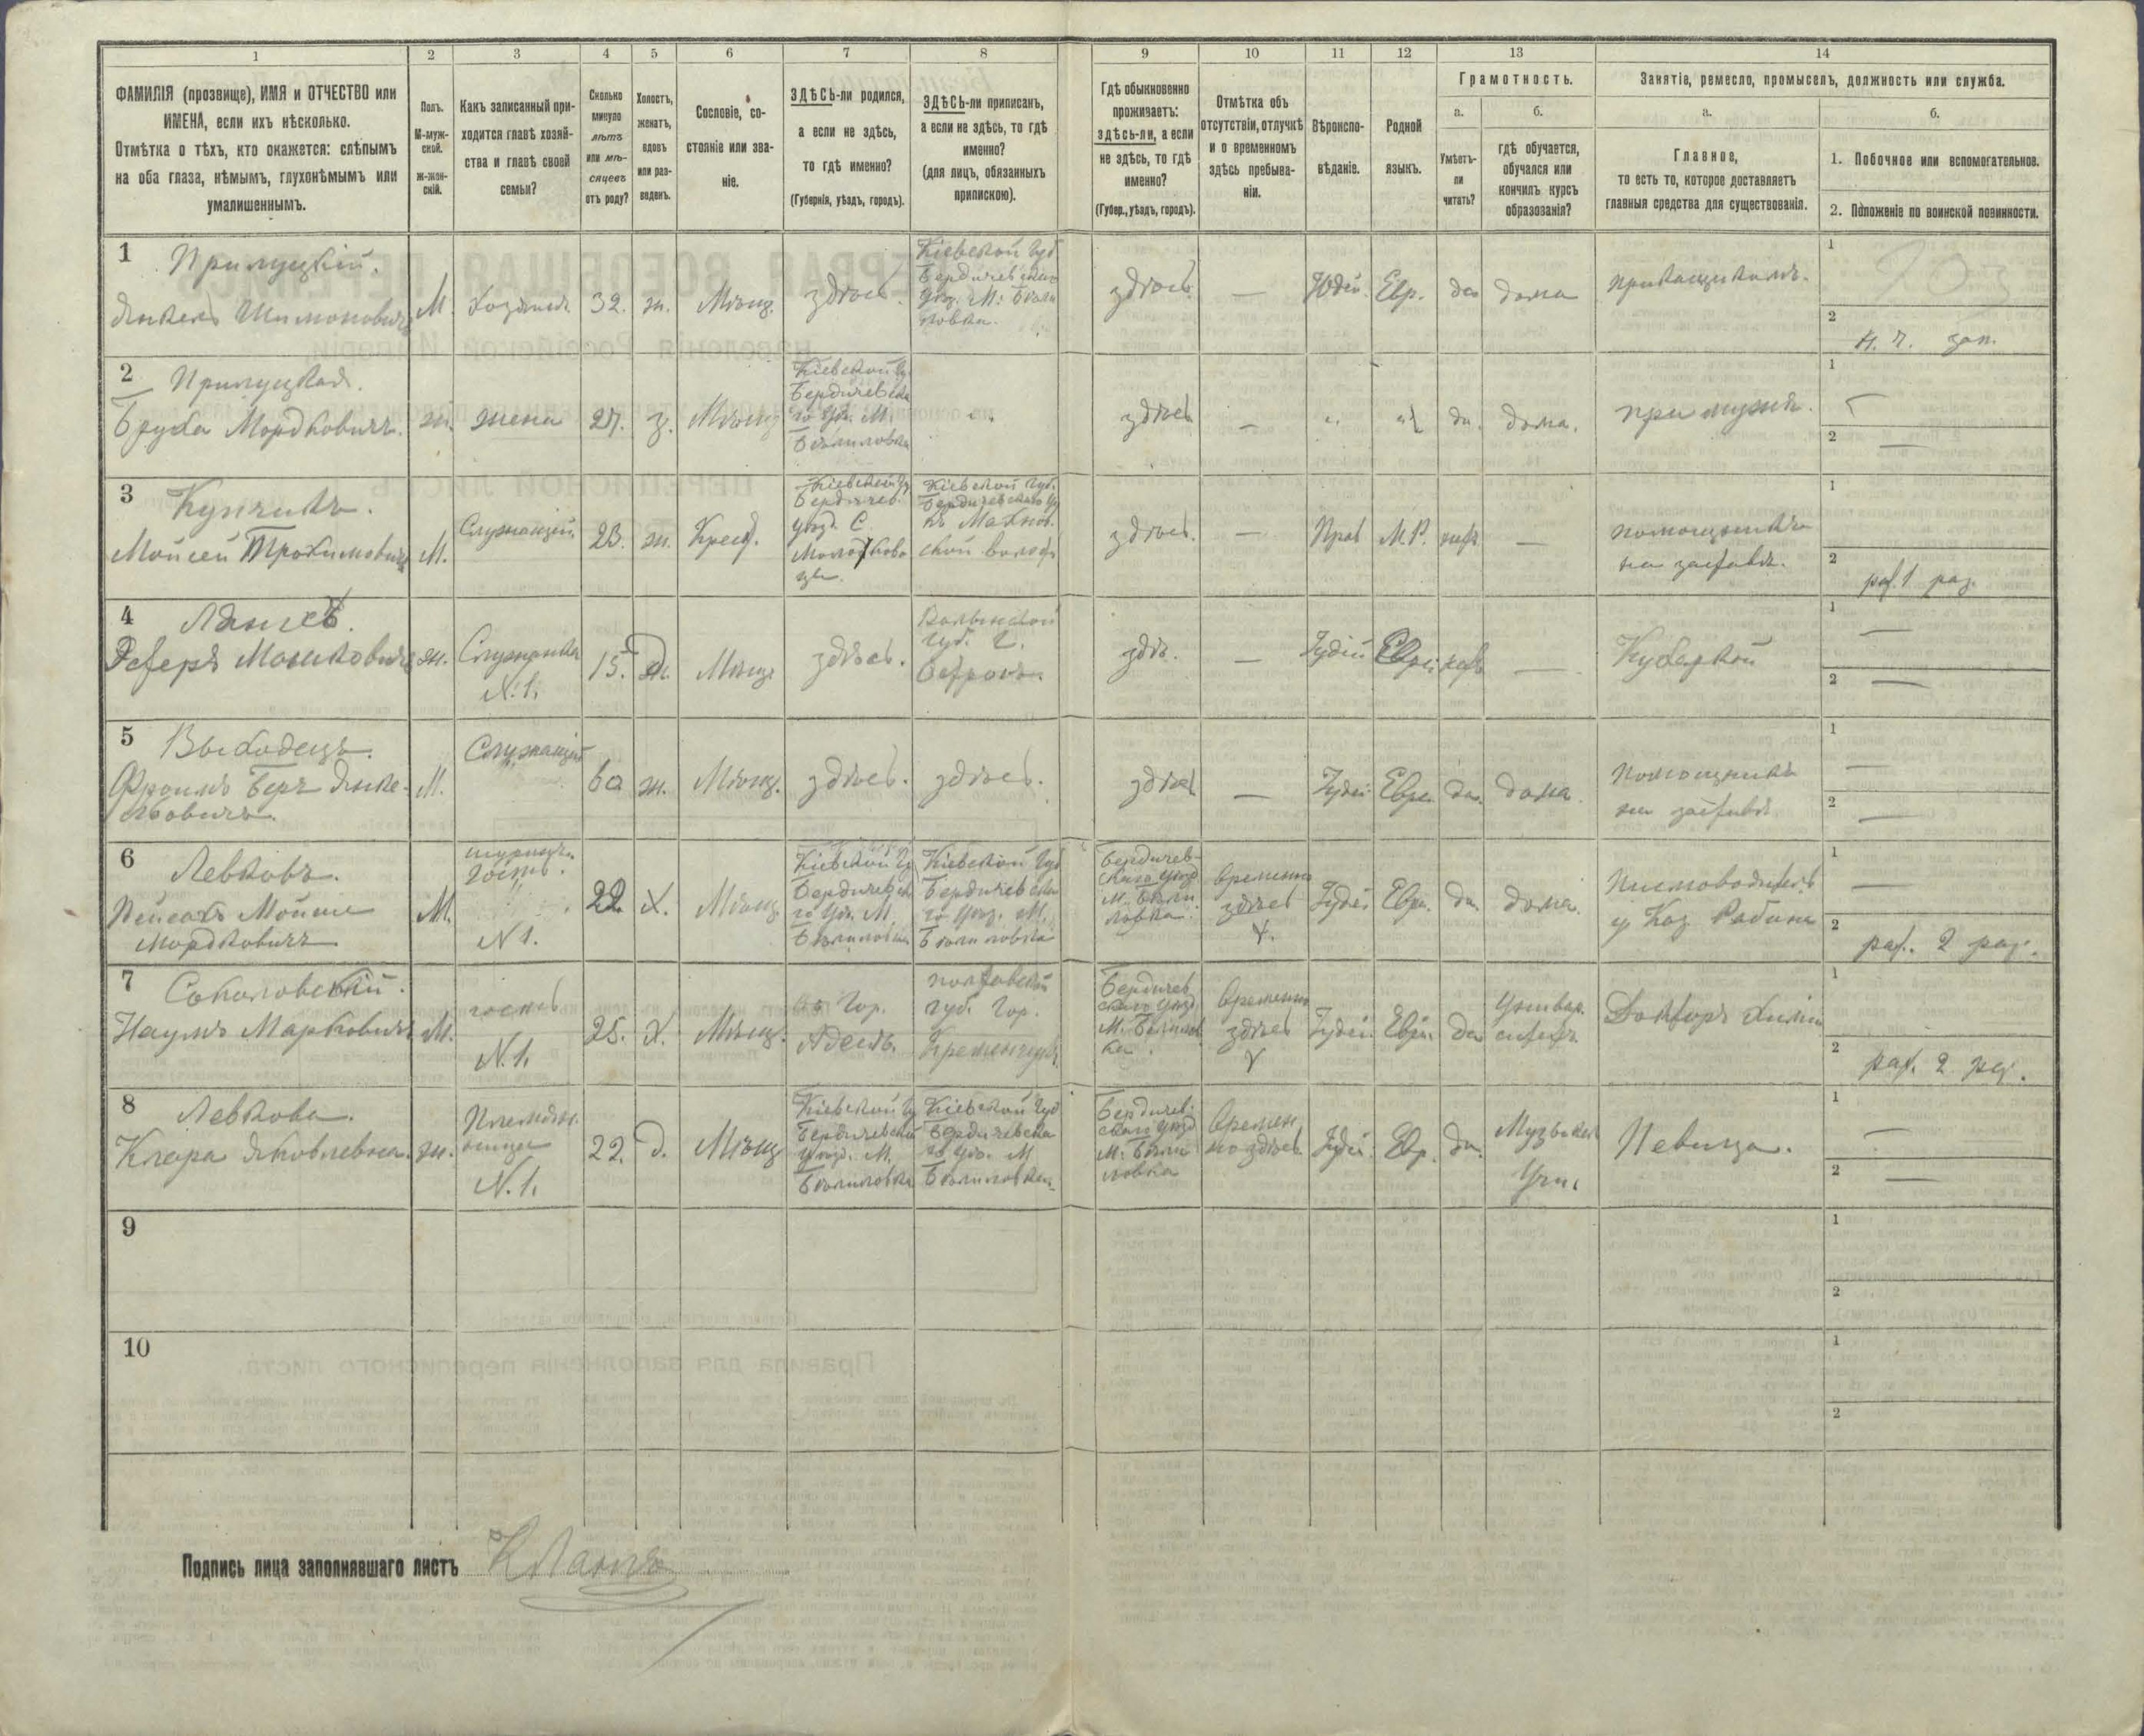 1
2
3
4
5
6
7
8
9
10
11
12
13
14
ФАМИЛІЯ (прозвище), ИМЯ и ОТЧЕСТВО или
ИМЕНА, если ихъ нѣсколько.
Отмѣтка о тѣхъ, кто окажется: слѣпымъ
на оба глаза, нѣмымъ, глухонѣмымъ или
умалишеннымъ.
Полъ.
М-муж-
ской.
Ж-жен-
скій.
Какъ записанный при-
ходится главѣ хозяй-
ства и главѣ своей
семьи?
Сколько
минуло
лѣтъ
или мѣ-
сяцевъ
отъ роду?
Холостъ,
женатъ,
вдовъ
или раз-
веденъ.
Сословіе, со-
стояніе или зва-
ніе.
ЗДѢСЬ-ли родился,
а если не здѣсь,
то гдѣ именно?
(Губернія, уѣздъ, городъ).
ЗДѢСЬ-ли приписанъ,
а если не здѣсь, то гдѣ
именно?
(для лицъ, обязанныхъ
припискою).
Гдѣ обыкновенно
проживаетъ:
здѣсь-ли, а если
не здѣсь, то гдѣ
именно?
(Губер., уѣздъ, городъ).
Отмѣтка объ
отсутствіи, отлучкѣ
и о временномъ
здѣсь пребыва-
ніи.
Вѣроиспо-
вѣданіе.
Родной
языкъ.
Грамотность.
а.
Умѣетъ-
ли
читать?
б.
гдѣ обучается,
обучался или
кончилъ курсъ
образованія?
Занятіе, ремесло, промыселъ, должность или служба.
а.
Главное,
то есть то, которое доставляетъ
главныя средства для существованія.
б.
1. Побочное или вспомогательное.
2. Положеніе по воинской повинности.
1
Прилуцкій.
Янкель Шимоновичъ
М.
хозяинъ
32.
ж.
Мѣщ.
здѣсь.
Кіевской Губ
Бердичевскаго
Уѣз. М. Бѣли
ловка.
здѣсь.
—
Іюдей.
Евр.
да
дома
прикащикомъ.
1
2
н. ч. зап.
2
Прилуцкая.
Бруха Мордковичъ.
ж.
жена
27.
з.
Мѣщ
Кіевской Гу.
Бердичевска
го Уѣз. М.
Бѣлиловка
здѣсь
—
да.
дома.
при мужѣ.
1
2
—
3
Купчикъ.
Мойсей Трохимовичъ
М.
Служащій.
23.
ж.
Крест.
Кіевской Гу
Бердичев.
уѣзд. С.
Кіевской Губ.
Бердичевскаго У
Махнов.
ской волост
здѣсь.
—
Прав
М.Р.
нетъ
—
помощникъ
на заставѣ.
1
2
рат. 1 раз.
4
Эстеръ Мошковичъ
ж.
Служанка
N.1.
15.
Д.
Мѣщ
здѣсь.
Волынской
губ. Г.
Острогъ.
здѣ.
—
Іудей
Еврей
нетъ
—
Кухаркой
1
—
2
—
5
Выходецъ.
Фроимъ Беръ Янке-
льовичъ.
М.
Служащій
60
ж.
Мѣщ.
здѣсь.
здѣсь.
здѣсь
—
Іудей.
Евре.
да.
дома.
помощникъ
на заставѣ.
1
—
2
—
6
Левковъ.
Пейсахъ Мойше
Мордковичъ
М.
гость.
N 1.
22.
Х.
Мѣщ
Кіевской Гу
Бердичевска
го Уѣз. М.
Бѣлиловка
Кіевской Губ
Бердичевска
го Уѣз. М.
Бѣлиловка
Бердичев-
скаго уѣзд
М. Бѣли
ловка.
временно
здѣсь
Іудей.
Евре.
да.
дома.
писмоводитель
у Каз. Рабина
1
—
2
рат. 2 раз.
7
Соколовскій.
Наумъ Марковичъ
М.
гость
N.1.
25.
Х.
Мѣщ.
въ Гор.
Адесѣ.
полтавской
губ. Гор.
Кременчугъ.
Бердичев
скаго уѣзд
М. Бѣлилов
ка.
временно
здѣсь
Іудей.
Евре.
да
Универ.
ситетъ
Докторъ химіи
1
2
рат. 2 раз.
8
Левкова.
Клара Яковлевна.
ж.
Племян.
ница
N.1.
22.
д.
Мѣщ
Кіевской Гу
Бердичевской
Уѣзд. М.
Бѣлиловка
Кіевской Губ
Бердичевска
го Уѣз. М
Бѣлиловка.
Бердичев.
скаго уѣзд
М. Бѣли
ловка
времен
но здѣсь
Іудей.
Евр.
да.
Музыкал
Учи.
Певица.
1
—
2
—
9
1
2
10
1
2
Подпись лица заполнявшаго листъ